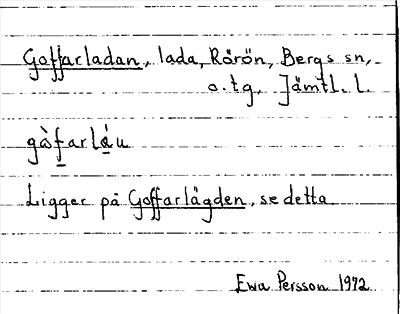 Goffarladan, lada, Rörön, Bergs sn,
o.tg. Jämtl. l.
gàf̲arlá̲u
Ligger på Goffarlägden, se detta
Ewa Persson 1972